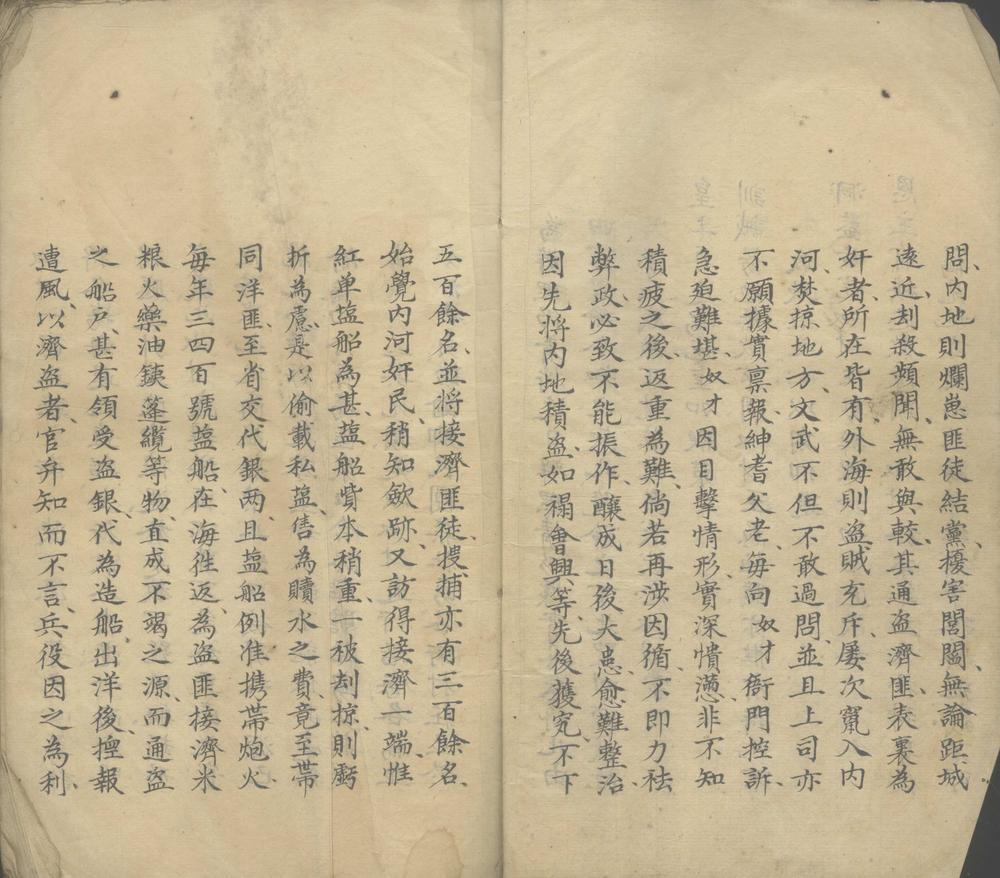 問、內地則爛崽匪徒結黨、擾害閭閻、無論距城
遠近、刦殺頻聞、無敢與較、其通盜濟匪、表裏為
奸者、所在皆有、外海則盜賊充斥、屢次竄入內
河、焚掠地方、文武不但不敢過問、並且上司亦
不願據實禀報、紳耆父老、每向奴才衙門控訴、
急廹難堪、奴才因目擊情形、實深憤懣、非不知
積疲之後、返重為難、倘若再涉因循、不即力祛
弊政、必致不能振作、釀成日後大患、愈難整治、
因先將內地積盜、如禤會興等、先後獲究、不下
五百餘名、並將接濟匪徒、搜捕亦有三百餘名、
始覺內河奸民、稍知斂跡、又訪得接濟一端、惟
紅单塩船為甚、塩船貲本稍重、一被刦掠、則虧
折為慮、是以偷載私塩、售為贖水之費、竟至帶
同洋匪、至省交代銀两、且塩船例准携帶炮火、
每年三四百號塩船、在海徃返、為盜匪接濟米
粮火藥油鉄蓬纜等物、直成不竭之源、而通盜
之船户、甚有領受盜銀、代為造船、出洋後、捏報
遭風、以濟盜者、官弁知而不言、兵役因之為利、